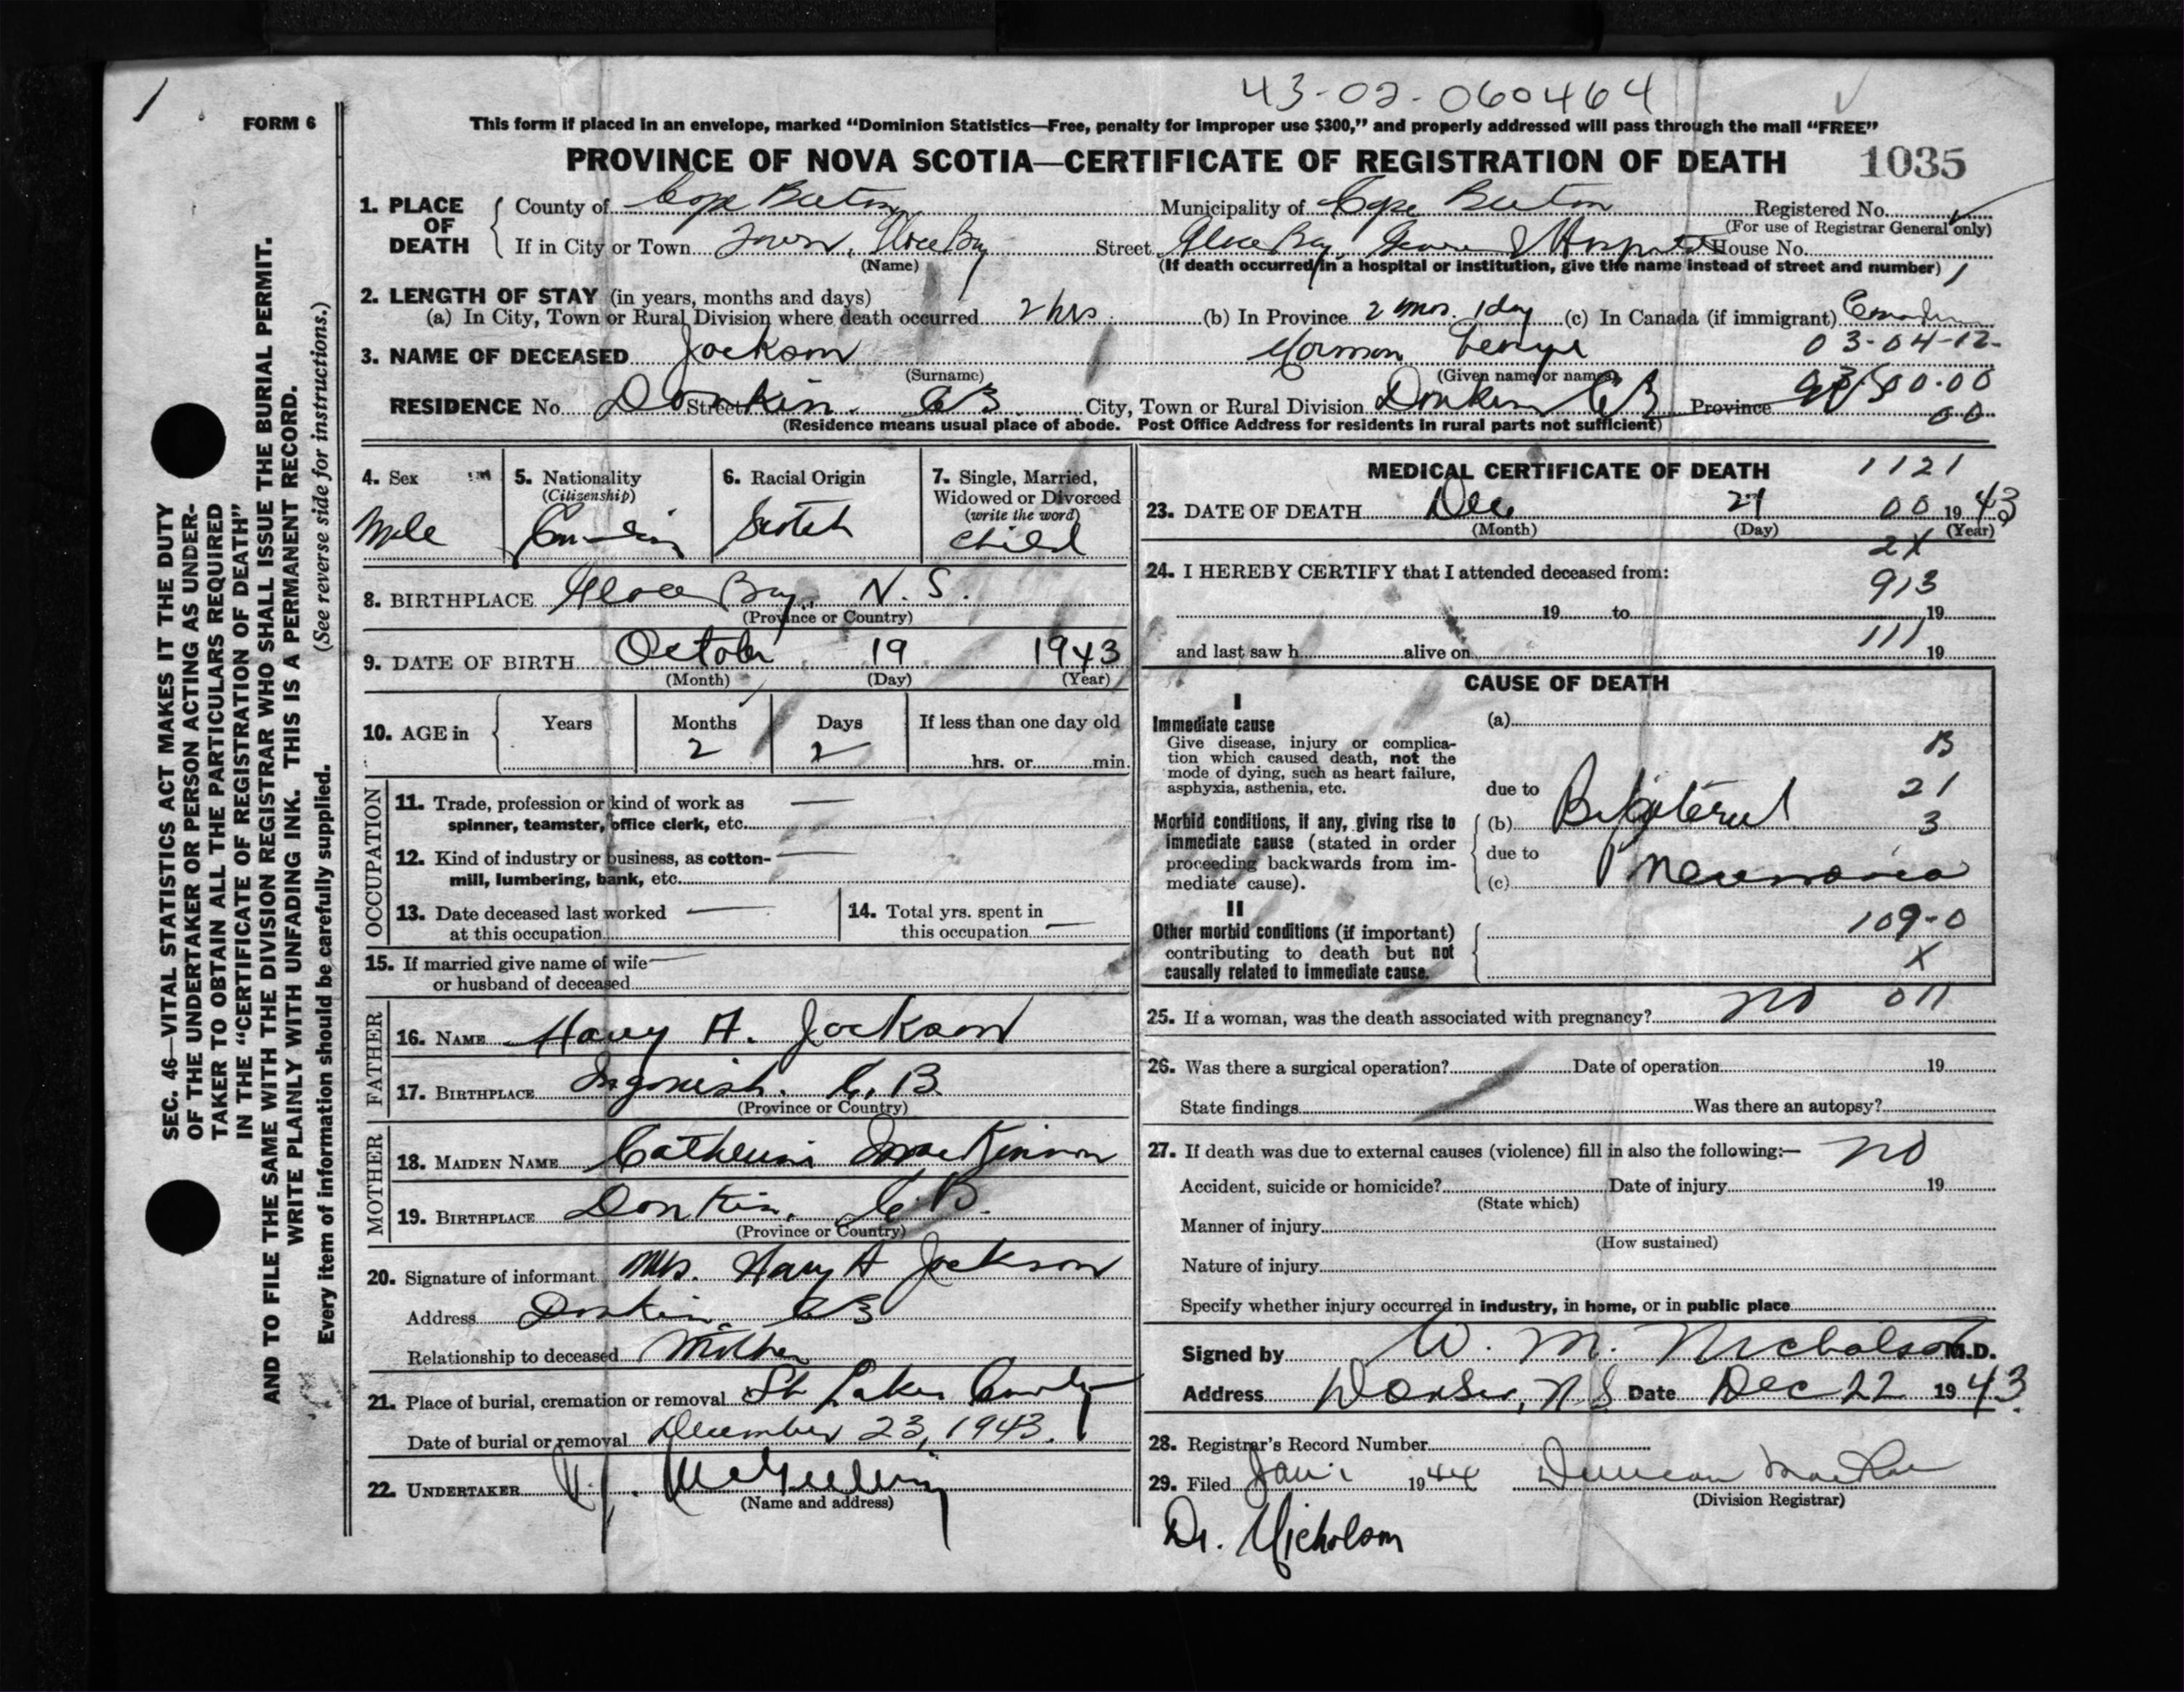 1
43-02-060464
FORM 6
This form if placed in an envelope, marked “Dominion Statistics—Free, penalty for improper use $300,” and properly addressed will pass through the mail “FREE”
PROVINCE OF NOVA SCOTIA—CERTIFICATE OF REGISTRATION OF DEATH 1035
1. PLACE OF DEATH County of Cape Breton Municipality of Cape Breton Registered No.
(For use of Registrar General only)
If in City or Town Town, Glace Bay Street Glace Bay General Hospital House No.
(Name) (If death occurred in a hospital or institution, give the name instead of street and number) 1
2. LENGTH OF STAY (in years, months and days)
(a) In City, Town or Rural Division where death occurred 2 hrs. (b) In Province 2 mos. 1 day (c) In Canada (if immigrant) Canadian
3. NAME OF DECEASED Jackson Norman George 03-04-12-
(Surname) (Given name or names)
RESIDENCE No. Street Donkin. C B. City, Town or Rural Division Donkin C B Province 00.00
00
(Residence means usual place of abode. Post Office Address for residents in rural parts not sufficient)
4. Sex Male
5. Nationality (Citizenship) Canadian
6. Racial Origin Scotch
7. Single, Married, Widowed or Divorced (write the word) child
8. BIRTHPLACE Glace Bay, N. S.
(Province or Country)
9. DATE OF BIRTH October 19 1943
(Month) (Day) (Year)
10. AGE in Years Months Days If less than one day old
2 2 hrs. or min.
OCCUPATION
11. Trade, profession or kind of work as —
spinner, teamster, office clerk, etc.
12. Kind of industry or business, as cotton- —
mill, lumbering, bank, etc.
13. Date deceased last worked — 14. Total yrs. spent in
at this occupation this occupation —
15. If married give name of wife —
or husband of deceased
FATHER
16. NAME Harry A. Jackson
17. BIRTHPLACE Ingonish. C. B.
(Province or Country)
MOTHER
18. MAIDEN NAME Catherine MacKinnon
19. BIRTHPLACE Donkin, C. B.
(Province or Country)
20. Signature of informant Mrs. Harry A Jackson
Address Donkin C B
Relationship to deceased Mother
21. Place of burial, cremation or removal St Lukes
Date of burial or removal December 23, 1943.
22. UNDERTAKER
(Name and address)
MEDICAL CERTIFICATE OF DEATH 1121
23. DATE OF DEATH Dec 21 00 1943
(Month) (Day) (Year)
2X
24. I HEREBY CERTIFY that I attended deceased from:
913
19 to 19
111
and last saw h alive on 19
CAUSE OF DEATH
I
Immediate cause (a)
Give disease, injury or complication which caused death, not the mode of dying, such as heart failure, asphyxia, asthenia, etc.
B
due to 21
Morbid conditions, if any, giving rise to immediate cause (stated in order proceeding backwards from immediate cause).
(b) Bilateral 3
due to
(c) Pneumonia
II
Other morbid conditions (if important) contributing to death but not causally related to immediate cause.
109-0
X
25. If a woman, was the death associated with pregnancy? no 011
26. Was there a surgical operation? Date of operation 19
State findings Was there an autopsy?
27. If death was due to external causes (violence) fill in also the following:— no
Accident, suicide or homicide? Date of injury 19
(State which)
Manner of injury
(How sustained)
Nature of injury
Specify whether injury occurred in industry, in home, or in public place
Signed by W. M. Nicholson M.D.
Address N S Date Dec 22 1943
28. Registrar's Record Number
29. Filed Jan 1944 Duncan MacRae
(Division Registrar)
Dr. Nicholson
SEC. 46—VITAL STATISTICS ACT MAKES IT THE DUTY
OF THE UNDERTAKER OR PERSON ACTING AS UNDER-
TAKER TO OBTAIN ALL THE PARTICULARS REQUIRED
IN THE “CERTIFICATE OF REGISTRATION OF DEATH”
AND TO FILE THE SAME WITH THE DIVISION REGISTRAR WHO SHALL ISSUE THE BURIAL PERMIT.
WRITE PLAINLY WITH UNFADING INK. THIS IS A PERMANENT RECORD.
Every item of information should be carefully supplied. (See reverse side for instructions.)